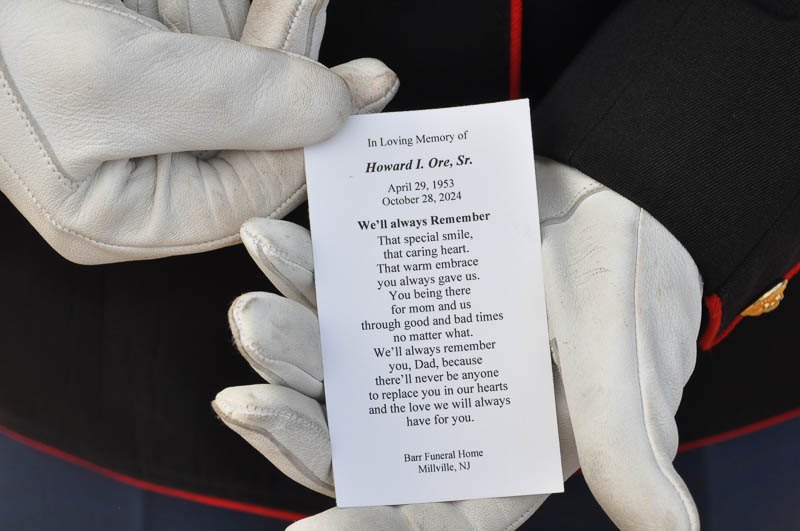 In Loving Memory of
Howard I. Ore, Sr.
April 29, 1953
October 28, 2024
We'll always Remember
That special smile,
that caring heart.
That warm embrace
you always gave us.
You being there
for mom and us
through good and bad times
no matter what.
We'll always remember
you, Dad, because
there'll never be anyone
to replace you in our hearts
and the love we will always
have for you.
Barr Funeral Home
Millville, NJ